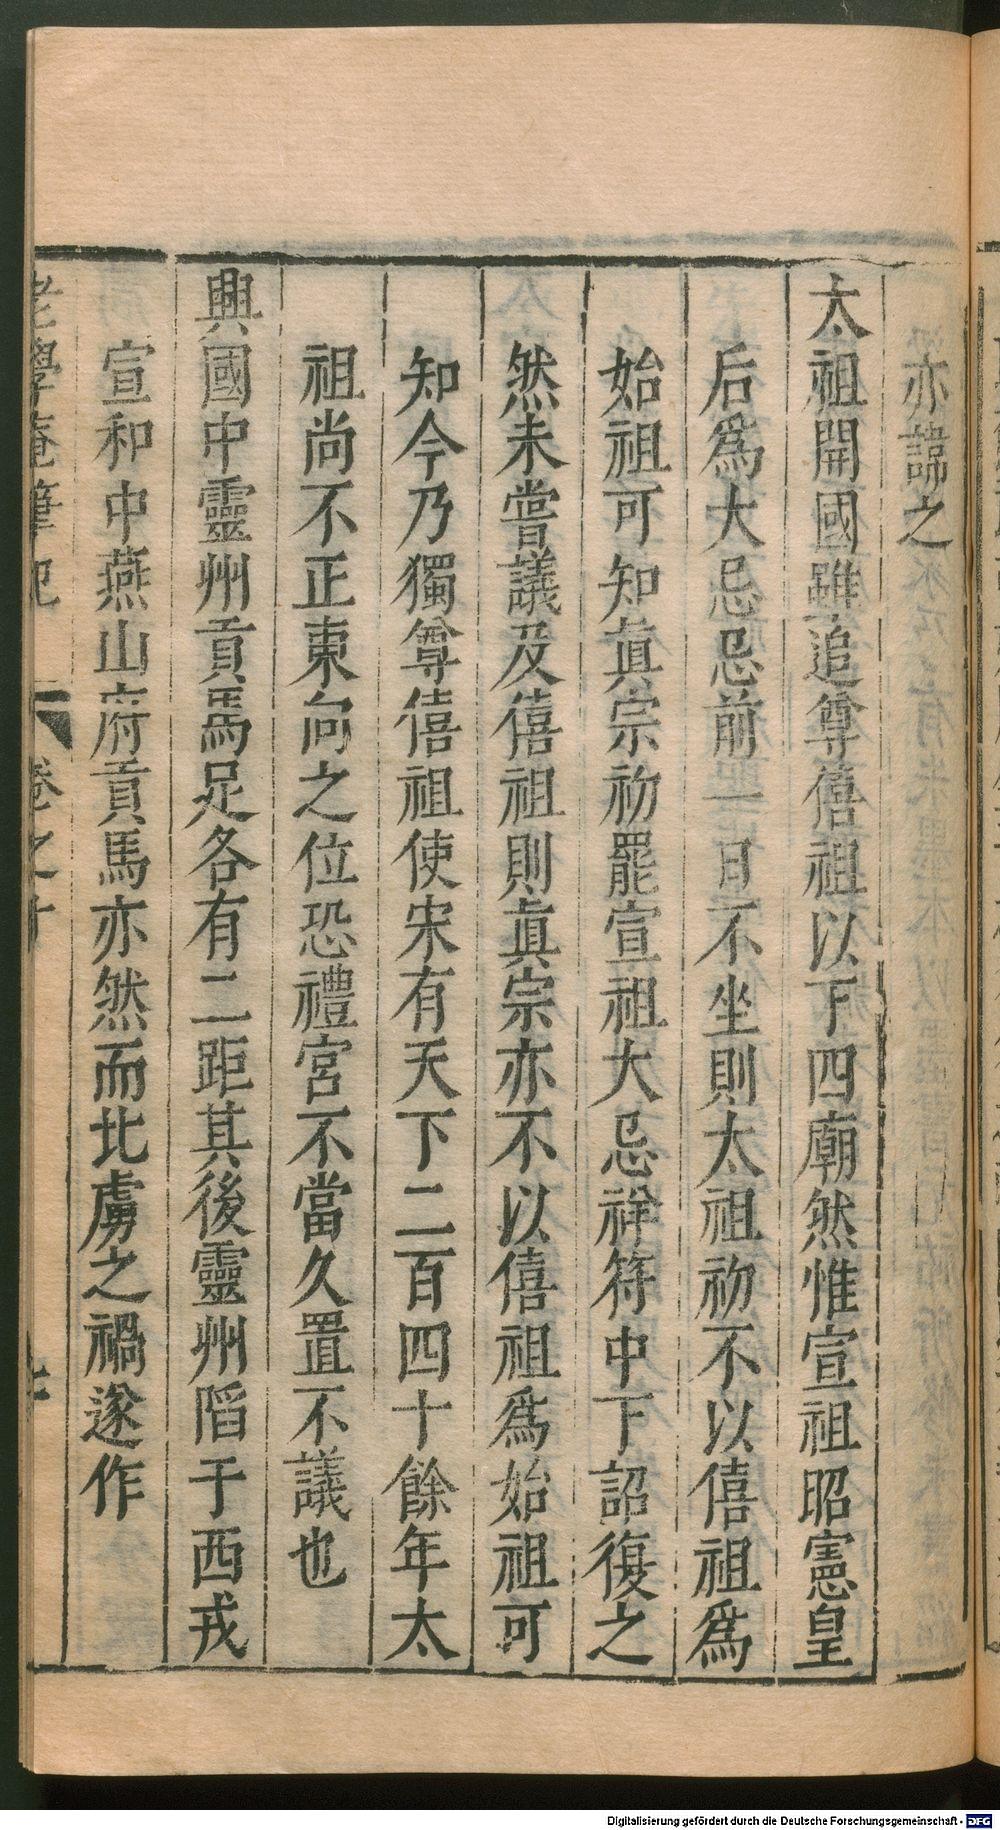 亦諱之
太祖開國雖追尊僖祖以下四廟然惟宣祖昭憲皇
后爲大忌忌前一日不坐則太祖初不以僖祖爲
始祖可知眞宗初罷宣祖大忌祥符中下詔復之
然未嘗議及僖祖則眞宗亦不以僖祖爲始祖可
知今乃獨尊僖祖使宋有天下二百四十餘年太
祖尚不正東向之位恐禮宮不當久置不議也
興國中靈州貢馬足各有二距其後靈州陷于西戎
宣和中燕山府貢馬亦然而北虜之禍遂作
老學庵筆記 卷之十
Digitalisierung gefördert durch die Deutsche Forschungsgemeinschaft - DFG